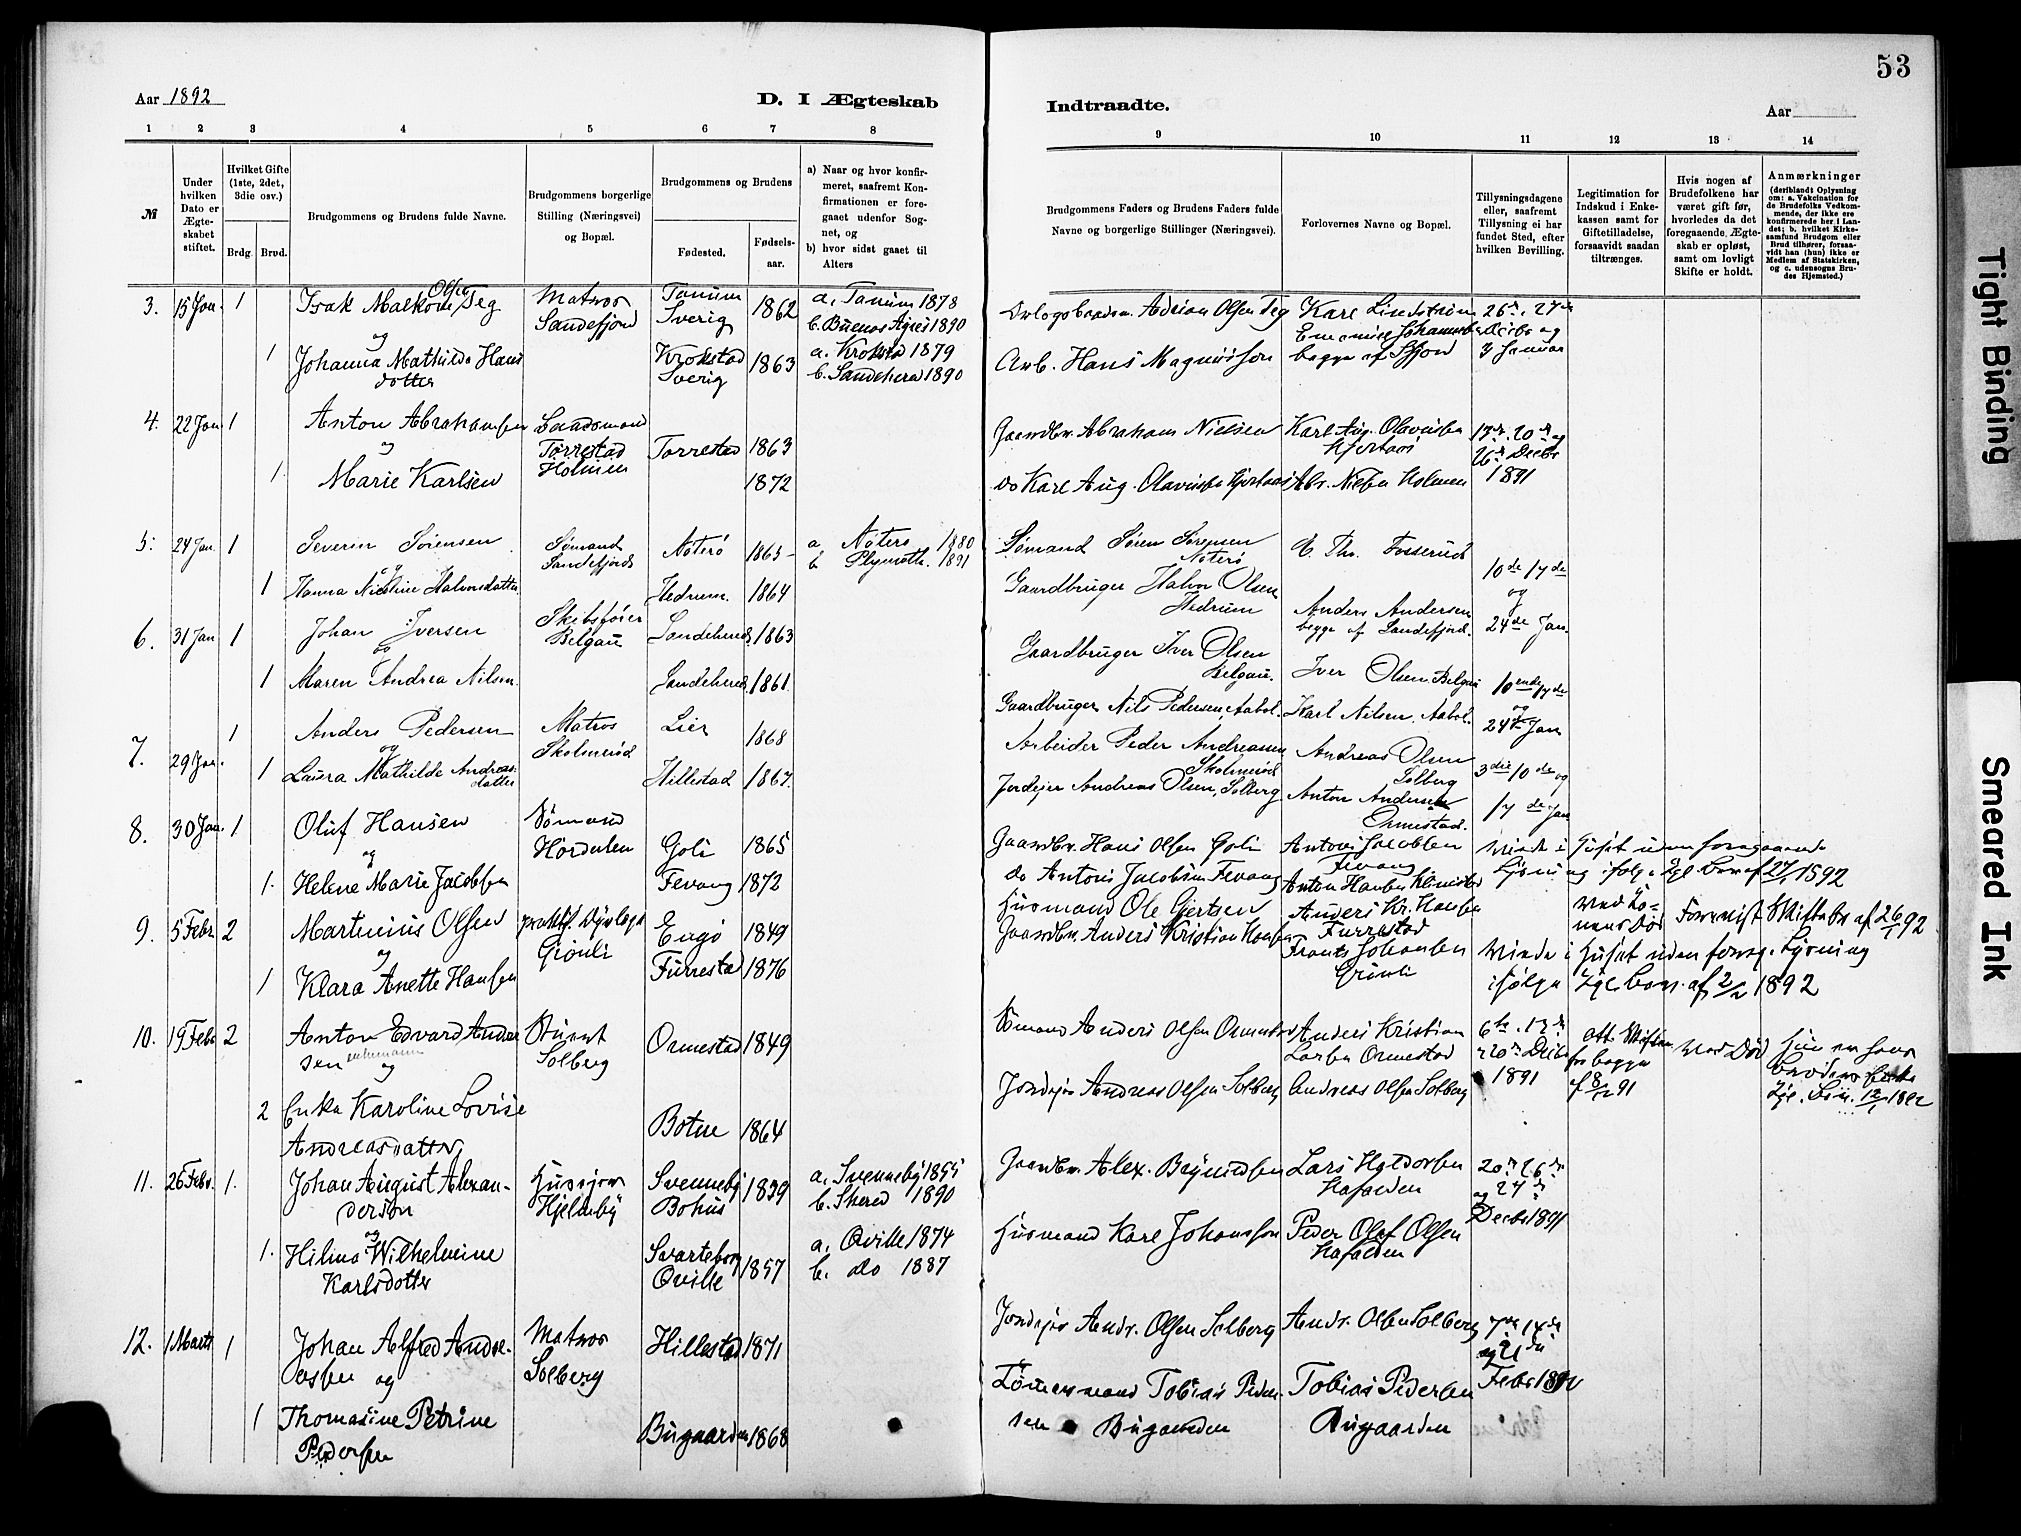 53
Aar 1892
D. I Ægteskab
Indtraadte.
Aar
1 2 3 4 5 6 7 8
9 10 11 12 13 14
№
Under hvilken Dato er Ægteskabet stiftet.
Hvilket Gifte (1ste, 2det, 3die osv.)
Brdg. Brud.
Brudgommens og Brudens fulde Navne.
Brudgommens borgerlige Stilling (Næringsvei) og Bopæl.
Brudgommens og Brudens
Fødested.
Fødselsaar.
a) Naar og hvor konfirmeret, saafremt Konfirmationen er foregaaet udenfor Sognet, og
b) hvor sidst gaaet til Alters
Brudgommens Faders og Brudens Faders fulde Navne og borgerlige Stillinger (Næringsvei).
Forlovernes Navne og Bopæl.
Tillysningsdagene eller, saafremt Tillysning ei har fundet Sted, efter hvilken Bevilling.
Legitimation for Indskud i Enkekassen samt for Giftetilladelse, forsaavidt saadan tiltrænges.
Hvis nogen af Brudefolkene har været gift før, hvorledes da det foregaaende Ægteskab er opløst, samt om lovligt Skifte er holdt.
Anmærkninger (deriblandt Oplysning om: a. Vakcination for de Brudefolks Vedkommende, der ikke ere konfirmerede her i Landet; b. hvilket Kirkesamfund Brudgom eller Brud tilhører, forsaavidt han (hun) ikke er Medlem af Statskirken, og c. udensogns Brudes Hjemsted.)
3. 15 Jan. 1 Isak Malkom Olsen Teg Matros Sandefjord Tanum Sverig 1862 a. Tanum 1878 b. Buenos Ayres 1890
Adrian Olsen Teg Karl Lindström 26de, 27de
og
1 Johanna Mathilda Hansdotter Krokstad Sverig 1863 a. Krokstad 1879 b. Sandeherad 1890
Arb. Hans Magnusson begge af Sfjord 3 Januar
4. 22 Jan 1 Anton Abrahamsen Torrestad Holmen Torrestad 1863
Gaardbr. Abraham Nielsen Karl Aug. Olavesen Hjertaas 13de, 20de og 26de Decbr 1891
og
1. Marie Karlsen 1872
do Karl Aug. Olavesen Hjertaas Abr. Nielsen Holmen
5. 24 Jan. 1 Severin Sörensen Sømand Sandefjord Nøterø 1865 a Nøterø 1880 b Plymouth. 1891
Sømand Søren Sørensen Nøterø Th. Fosserud 10de 17de og 24de Jan.
og
1 Hanna Nicoline Halvorsdatter Hedrum. 1864
Gaardbruger Halvor Olsen Hedrum Anders Andersen begge af Sandefjord.
6. 31 Jan 1 Johan Iversen Skibsfører Belgau Sandeherred 1863
Gaardbruger Iver Olsen Belgau. Iver Olsen Belgau 10ende 17de og 24de Jan
og
1 Maren Andrea Nilsen. Sandeherred 1861
Gaardbruger Nils Pedersen, Aabol. Karl Nilsen, Aabol.
7. 29 Jan. 1 Anders Pedersen Matros Skolmerød Lier 1868
Arbeider Peder Andreassen Skolmerød Andreas Olsen Solberg 3die 10de og 17de Jan
og
1 Laura Mathilde Andreasdatter Hillestad 1867.
Jordejer Andreas Olsen, Solberg Anton Andersen Ormestad.
8. 30 Jan. 1 Oluf Hansen Sømand Hørdalen Goli 1865
Gaardbr. Hans Olsen Goli Antoni Jacobsen Fevang
og
1. Helene Marie Jacobsen Fevang 1872
do Antoni Jacobsen Fevang
9. 5 Febr. 2 Martinius Olsen Grönli Engø 1849
Husmand Ole Gjertsen Anders Kr. Hansen Furrestad
og
1 Klara Anette Hansen Furrestad 1876
Gaardbr. Anders Kristian Hansen Frants Johansen Grönli
Viede i Huset uden foreg. Lysning ifølge kgl. bev. af 2/2 1892
10. 19 Febr 2 Anton Edvard Andersen enkemann og Solberg Ormestad 1849
Sömand Anders Olsen Ormestad Anders Kristian Larsen Ormestad 6te, 13de, 20de Decbr 1891 ved Död
2 Enka Karoline Lovise Andreasdatter Botne 1864
Jordejer Andreas Olsen Solberg Andreas Olsen Solberg
11. 26 Febr. 1. Johan August Alexanderson Hjelmby Svenneby Bohus 1839 a. Svenneby 1855 b. Skeed 1890
Gaardbr. Alex. Lars Hafalden 20de 26de og 24de Decbr 1891
og
1. Hilma Wilhelmine Karlsdotter Svarteborg Qville 1857 a. Qville 1874 b. do 1887
Husmand Karl Johansson Peder Olaf Olsen Hafalden
12. 1 Marts 1 Johan Alfred Andreassen og Matros Solberg Hillestad 1871
Jordejer Andr. Olsen Solberg Andr. Olsen Solberg 7de 14de og 21de Febr 1892
1 Thomasine Petrine Pedersen Bugaarden 1868
Tømmermand Tobias Pedersen Bugaarden Tobias Pedersen Bugaarden
Tight Binding
Smeared Ink